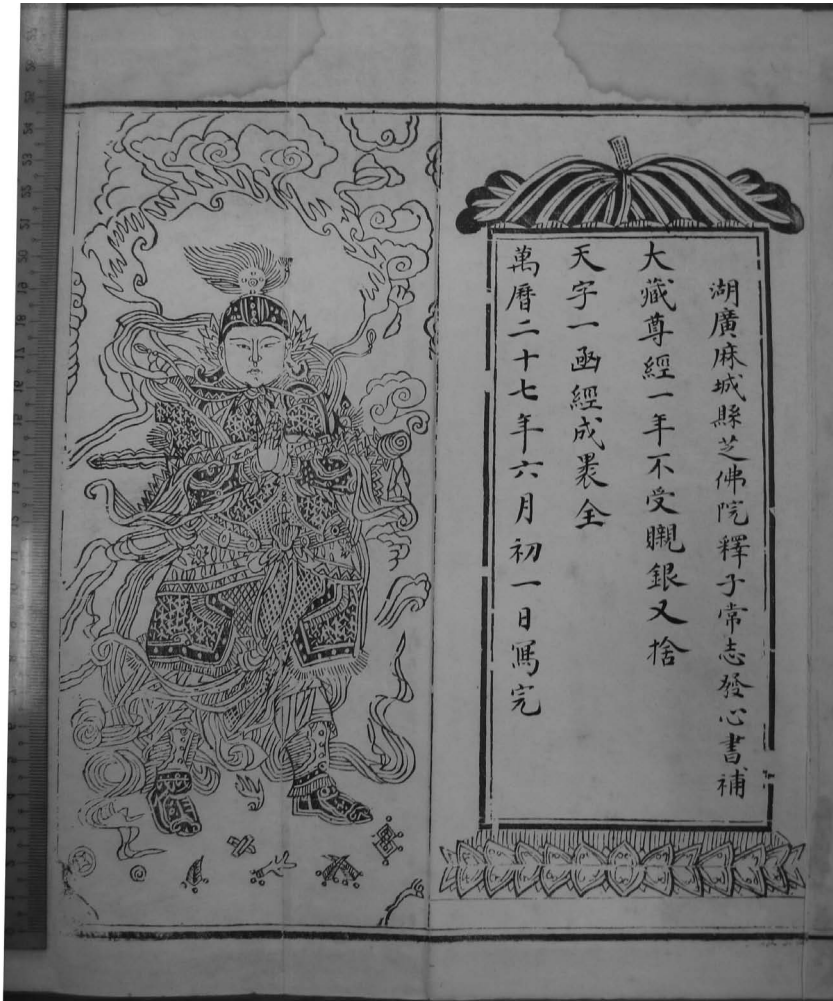 湖廣麻城縣芝佛院釋子常志發心書補
大藏尊經一年不受䞋銀又捨
天字一函經成褁全
萬曆二十七年六月初一日寫完